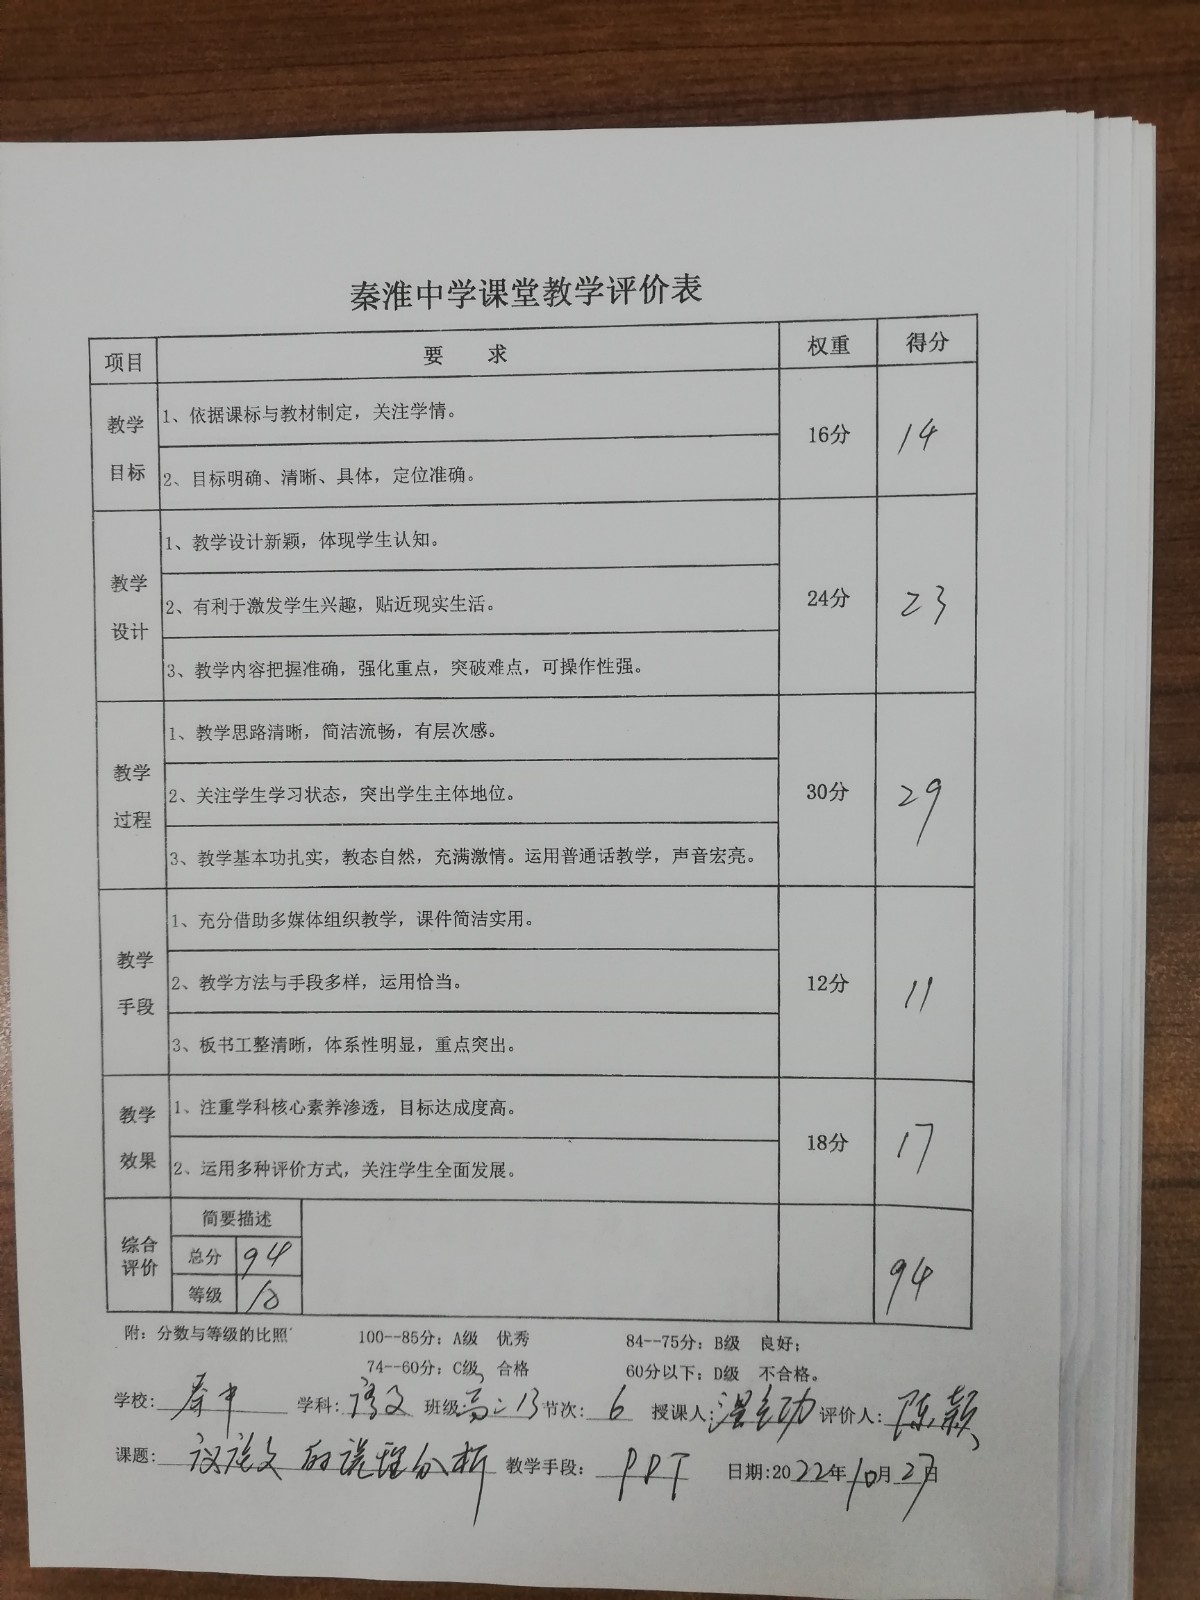 秦淮中学课堂教学评价表
项目 要 求 权重 得分
教学目标 1、依据课标与教材制定，关注学情。 16分 14
2、目标明确、清晰、具体，定位准确。
教学设计 1、教学设计新颖，体现学生认知。 24分 23
2、有利于激发学生兴趣，贴近现实生活。
3、教学内容把握准确，强化重点，突破难点，可操作性强。
教学过程 1、教学思路清晰，简洁流畅，有层次感。 30分 29
2、关注学生学习状态，突出学生主体地位。
3、教学基本功扎实，教态自然，充满激情。运用普通话教学，声音宏亮。
教学手段 1、充分借助多媒体组织教学，课件简洁实用。 12分 11
2、教学方法与手段多样，运用恰当。
3、板书工整清晰，体系性明显，重点突出。
教学效果 1、注重学科核心素养渗透，目标达成度高。 18分 17
2、运用多种评价方式，关注学生全面发展。
综合评价 简要描述
总分 94 94
等级
附：分数与等级的比照 100--85分：A级 优秀 84--75分：B级 良好；
74--60分：C级 合格 60分以下：D级 不合格。
学校：秦中 学科：语文 班级高二13 节次：6 授课人： 评价人：陈颖
课题：议论文的说理分析 教学手段：PPT 日期：2022年10月27日